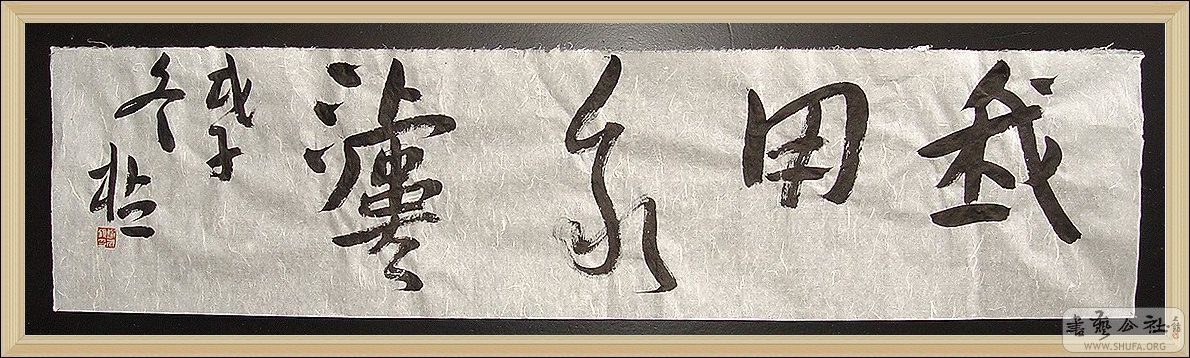 我用我灋
戊子
冬
書藝公社
WWW.SHUFA.ORG